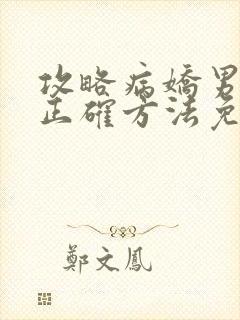 攻略病嬌男
正確方法免
鄭文鳳